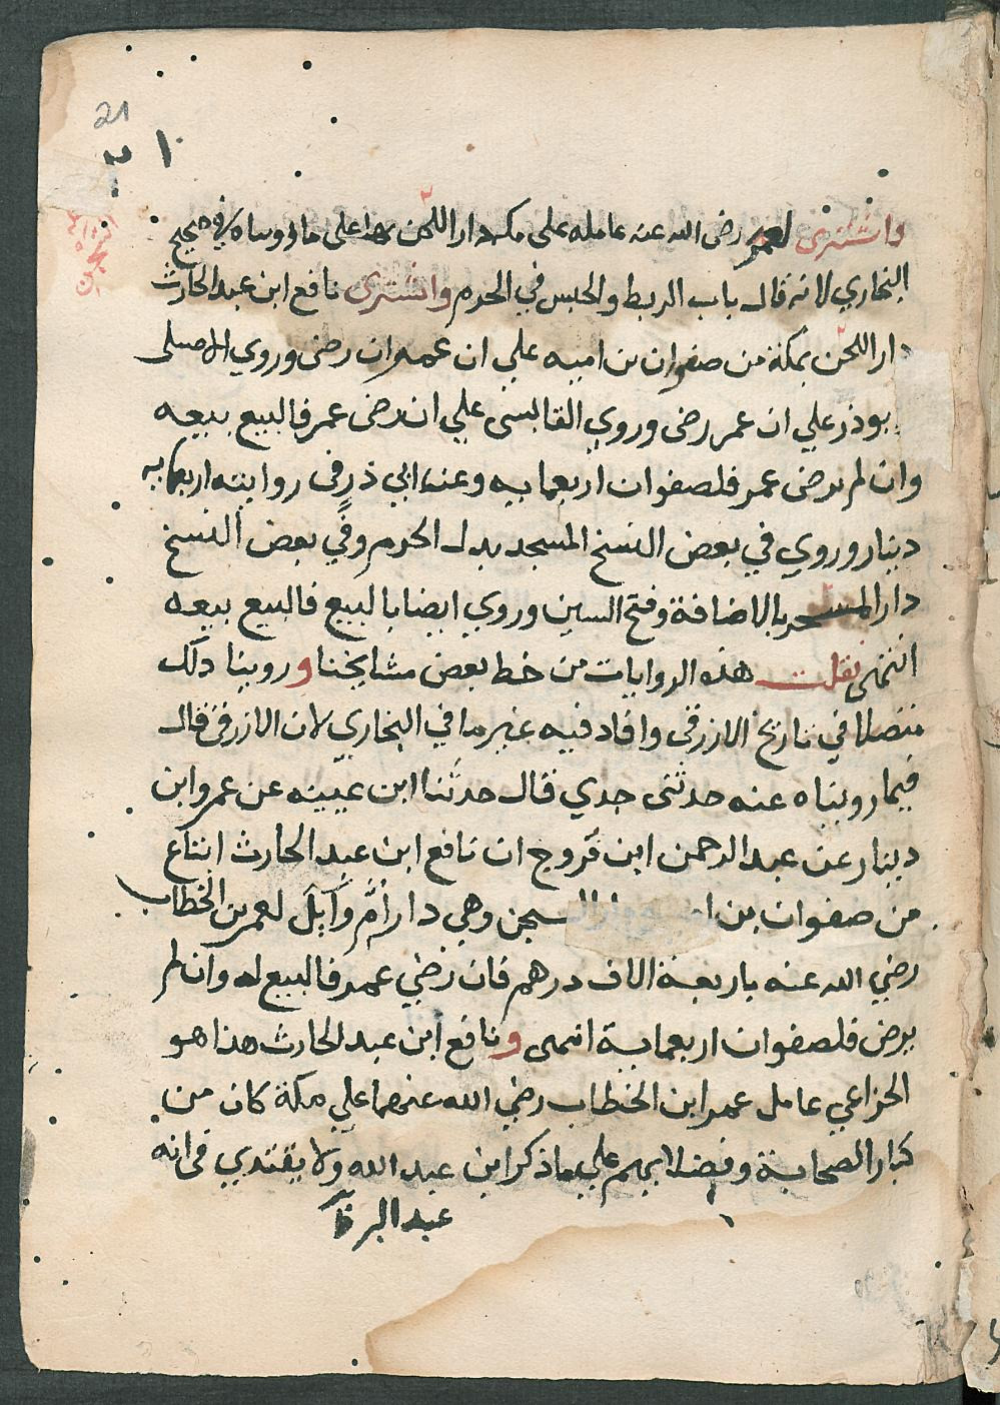 21
٢ ١٠
واشترى لعمر رضى الله عنه عامله على مكة دار السجن بها على ما رويناه في صحيح
البخاري لانه قال باب الربط والحبس في الحرم واشترى نافع ابن عبد الحارث
دار السجن بمكة من صفوان بن اميه علي ان عمر ان رضى وروي الاصيلى
بوذر علي ان عمر رضى وروي القابسى علي ان رضى عمر فالبيع بيعه
وان لم يرض عمر فلصفوان اربعمايه وعند ابي ذر في روايته اربعمايه
دينار وروي في بعض النسخ المسجد بدل الحرم وفي بعض النسخ
دار المسجد بالاضافة وفتح السين وروي ايضا بالبيع فالبيع بيعه
انتهى نقلت هذه الروايات من خط بعض مشايخنا وروينا ذلك
متصلا في تاريخ الازرقى وافاد فيه غير ما في البخاري لان الازرقى قال
فيما رويناه عنه حدثنى جدي قال حدثنا ابن عيينه عن عمرو ابن
دينار عن عبد الرحمن ابن فروج ان نافع ابن عبد الحارث ابتاع
من صفوان بن السجن وهي دار أم وآيل لعمر بن الخطاب
رضي الله عنه باربعة الاف درهم فان رضي عمر فالبيع له وان لم
يرض فلصفوان اربعماية انتهى ونافع ابن عبد الحارث هذا هو
الخزاعي عامل عمر ابن الخطاب رضي الله عنهما علي مكة كان من
كبار الصحابة وفضلايهم علي ما ذكر ابن عبد الله ولا يقتدي في انه
عبد البر